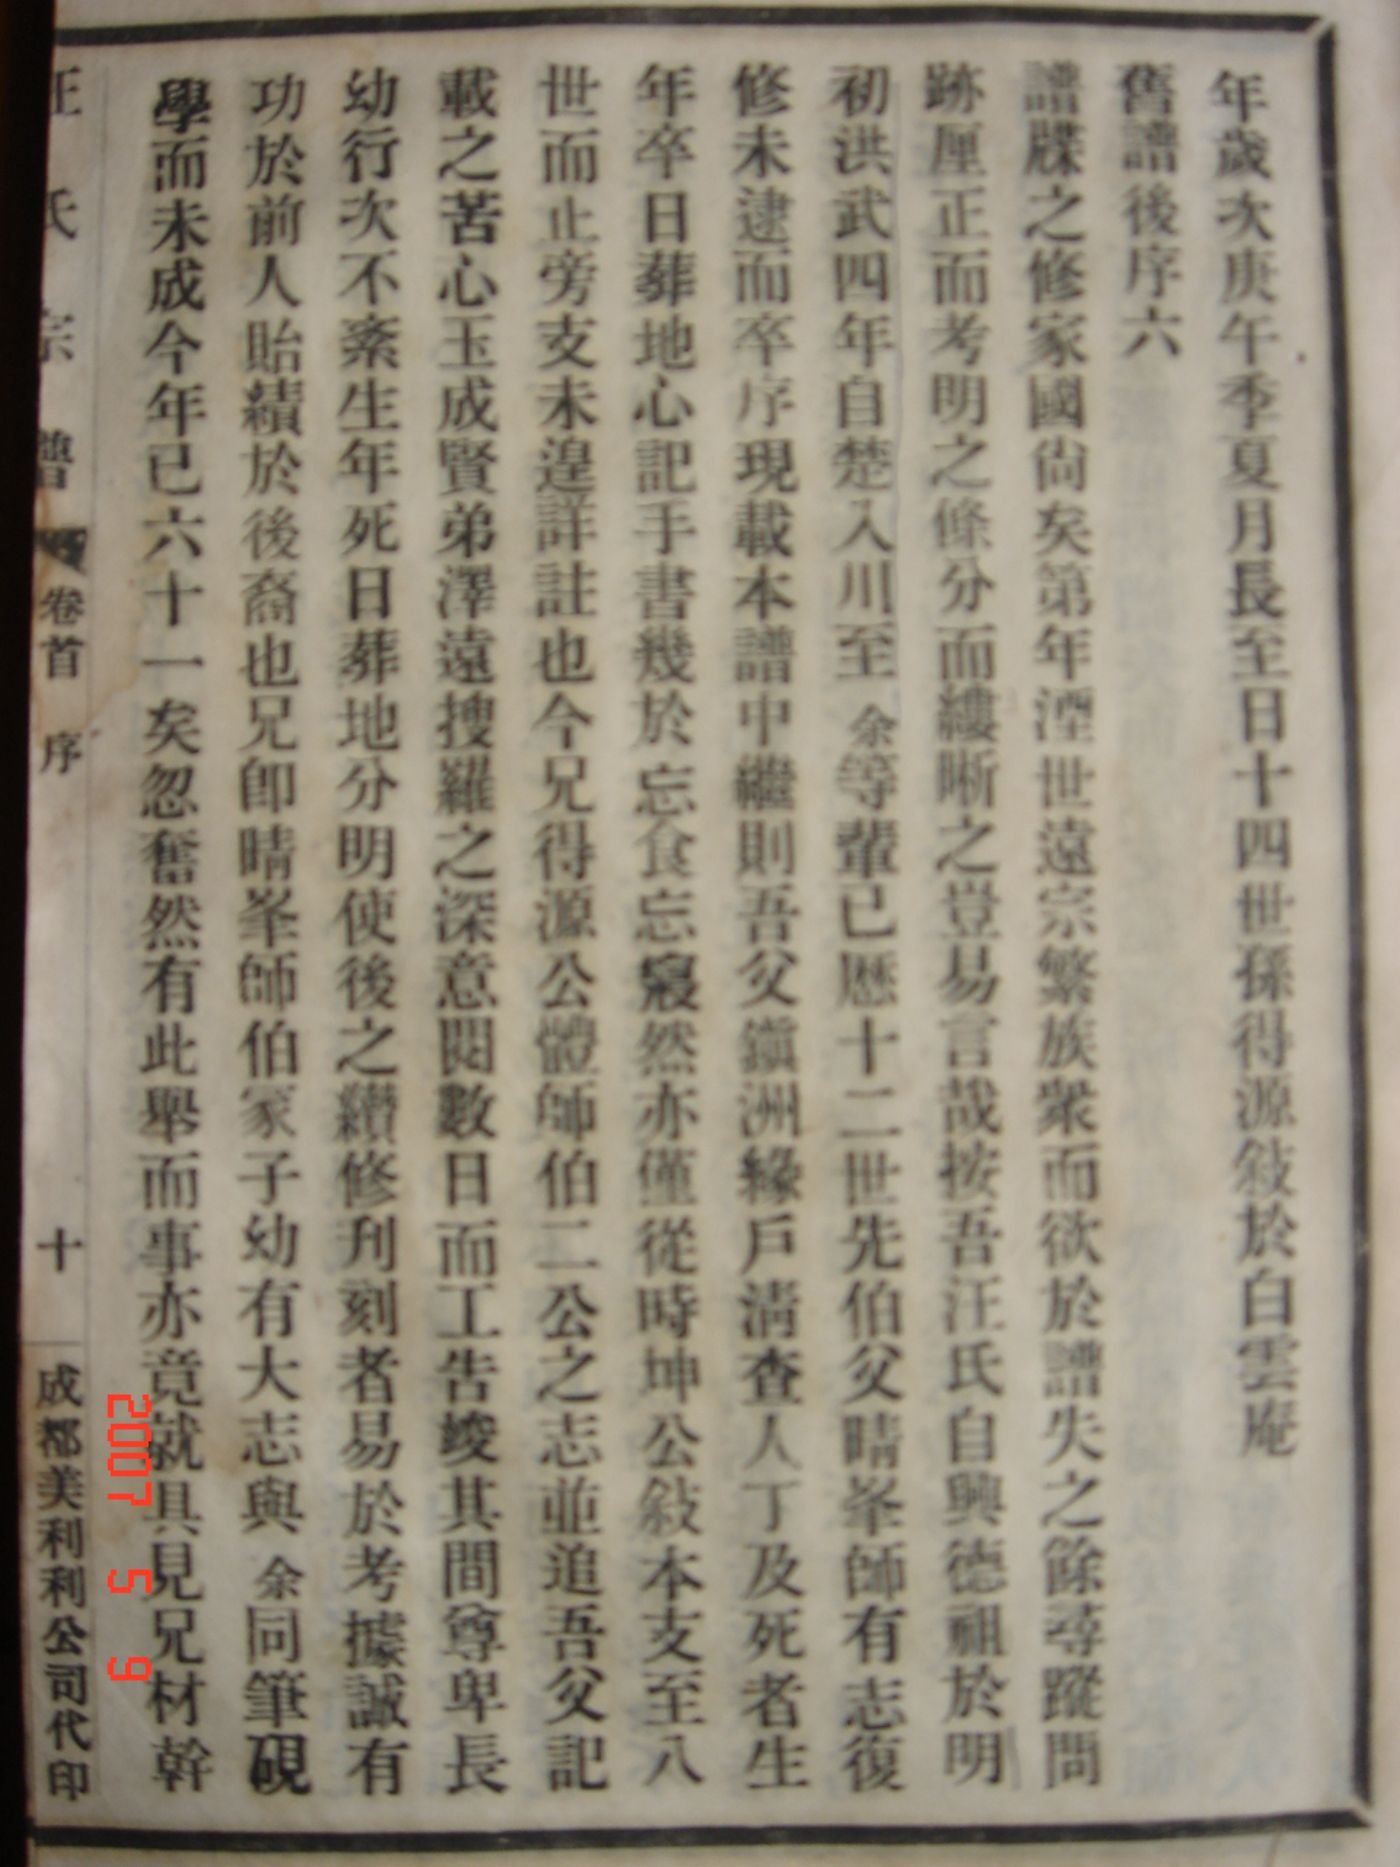 年歲次庚午季夏月長至日十四世孫得源敍於白雲庵
舊譜後序六
譜牒之修家國尙矣第年湮世遠宗繁族衆而欲於譜失之餘尋蹤問
跡厘正而考明之條分而縷晰之豈易言哉按吾汪氏自興德祖於明
初洪武四年自楚入川至余等輩已歷十二世先伯父晴峯師有志復
修未逮而卒序現載本譜中繼則吾父鎭洲緣戶淸查人丁及死者生
年卒日葬地心記手書幾於忘食忘寢然亦僅從時坤公敍本支至八
世而止旁支未遑詳註也今兄得源公體師伯二公之志並追吾父記
載之苦心玉成賢弟澤遠搜羅之深意閱數日而工告竣其間尊卑長
幼行次不紊生年死日葬地分明使後之續修刋刻者易於考據誠有
功於前人貽績於後裔也兄卽晴峯師伯冢子幼有大志與余同筆硯
學而未成今年已六十一矣忽奮然有此舉而事亦竟就具見兄材幹
汪氏宗譜 卷首 序 十 成都美利利公司代印
2007 5 9